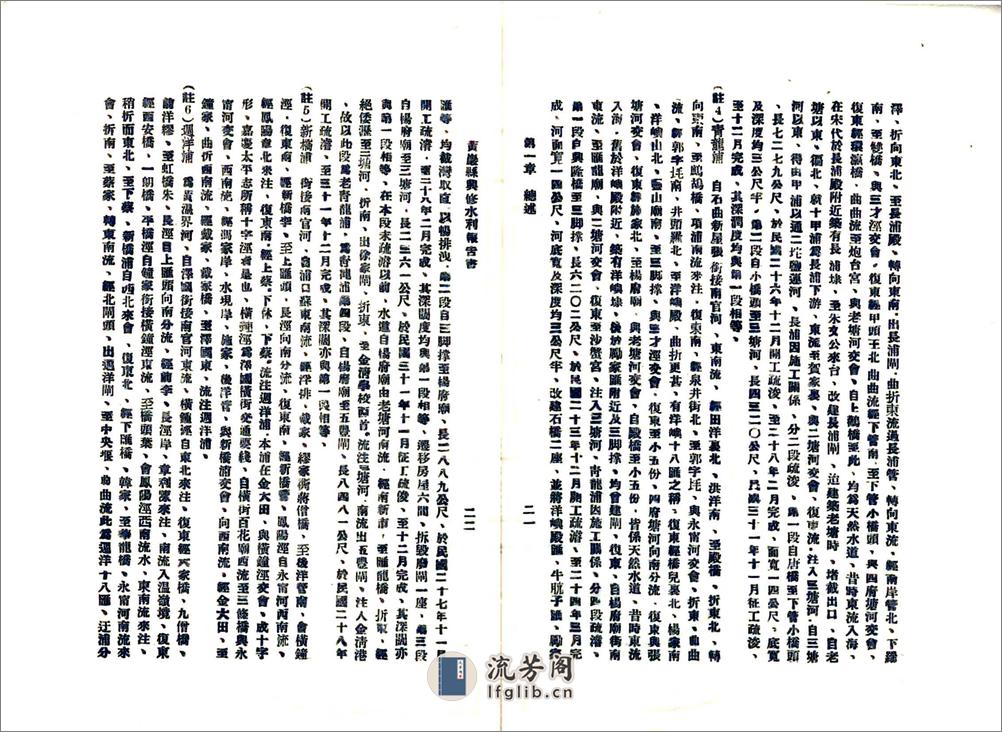 澤、折向東北、至長浦殿、轉向東南、出長浦閘、曲折東流過長浦管、轉向東流、經南岸管北、下謠
南、至雙橋、與三才涇交會、復東經甲頭王北、曲曲流經下管南、至下管小橋頭、與四府塘河交會、
復東經環瀛橋、曲曲流至炮台宮、與老塘河交會、自上鶴橋至此、均爲天然水道、昔時東流入海、
在宋代於長浦殿附近築有長浦埭、至朱文公來台、改建長浦閘、迨建築老塘時、堵截出口、自老
塘以東、偏北、就十甲浦爲長浦下游、東流至賀家裏、與二塘河交會、復東流、注入三塘河、自三塘
河以東、得由甲浦以通二坨鹽運河、長浦因施工關係、分二段疏浚、第一段自唐橋至下管小橋頭
、長七二七九公尺、於民國二十六年十二月開工疏浚、至二十八年二月完成、面寬一四公尺、底寬
及深度均三公尺半、第二段自小橋頭至三塘河、長四三二〇公尺、民國三十一年十一月征工疏浚、
至十二月完成、其深潤度均與第一段相等、
(註4)靑龍浦 自石曲新屋張銜接南官河、東南流、經田洋裏北、洪洋南、至殿橋、折東北、轉
向東南、至鷓鴣橋、項浦南流來注、復東南、經泉井街北、至郭字坵、與永甯河交會、折東、曲曲
流、經郭字坵南、井頭羅北、至洋嶼殿、曲折更甚、有洋嶼十八匯之稱、復東經橋兒裏北、楊家南
、洋嶼山北、藍山廟南、至三脚撑、與三才涇交會、復東至小五份、四府塘河向南分流、復東與張
塘河交會、復東經於家北、至楊府廟、與老塘河交會、自殿橋至小五份、皆係天然水道、昔時東流
入海、舊於洋嶼殿附近、築有洋嶼埭、後於勵家匯附近及三脚撑、均曾建閘、復東、自楊府廟街南
東流、至匯龍廟、與二塘河交會、復東至沙蟹宮、注入三塘河、靑龍浦因施工關係、分四段疏濬、
第一段自興隆橋至三脚撑、長六二〇二公尺、於民國二十三年十二月開工疏濬、至二十四年三月完
成、河面寬一四公尺、河底寬及深度均三公尺半、改建石橋二座、並將洋嶼殿匯、牛肮子匯、勵家
第一章 總述 二一
黃巖縣興修水利報吿書 二二
匯等、均截灣取直、以暢排洩、第二段自三脚撑至楊府廟、長二八八九公尺、於民國二十七年十一月
開工疏濬、至二十八年二月完成、其深闊度均與第一段相等、遷移房屋六間、拆毀廢閘一座、第三段
自楊府廟至三塘河、長二三六一公尺、於民國三十一年十一月征工疏浚、至十二月完成、其深闊亦
與第一段相等、在本段未疏濬以前、水道自楊府廟由老塘河南流、經南新市、至匯龍橋、折東、經
絕倭溼至三塘河、折南、出徐家閘、折東、至金清學校西首、流注三塘河、南流出五豐閘、注入金清港
、故以此段爲老靑龍浦、爲靑龍浦第四段、自楊府廟至五豐閘、長八四八一公尺、於民國二十八年
開工疏濬、至三十一年十二月完成、其深闊亦與第一段相等
(註5)新橋浦 銜接南官河、自浦口蘇東南流、經浮排、戴家、繆家街蔣僧橋、至後洋營南、會橫鐘
涇、復東南、經新橋李、至上匯頭、長涇向南分流、復東南、經新橋管、鳳陽涇自永甯河西南流、
經鳳陽章北來注、復東南、經上蔡、下休、下蔡、流注週洋浦、本浦在金大田、與橫鐘涇交會、成十字
形、嘉慶太平志所稱十字涇者是也、橫鐘涇爲澤國橫街交通要綫、自橫街百花廟西流至三條橋與永
甯河交會、西南流、經馮家岸、水現岸、施家、後洋管、與新橋浦交會、向西南流、經金大田、至
鐘家、曲折西南流、經戴家、戴家橋、至澤國東、流注週洋浦、
(註6)週洋浦 爲黃溫界河、自澤國銜接南官河東流、橫鐘涇自東北來注、復東經六家橋、九借橋、
前洋繆、至虹橋朱、長涇自上匯頭向南分流、經前李、長涇岸、章利濠來注、南流入溫嶺境、復東
經西安橋、一朗橋、平橋涇自鐘家銜接橫鐘涇東流、至橋頭葉、會鳳陽涇西南流水、東南流來注、
稍折而東北、至下蔡、新橋浦自西北來會、復東北、經下匯橋、韓家、至華龍橋、永甯河南流來
會、折南、至蔡家、轉東南流、經北閘頭、出週洋閘、至中央堰、曲曲流此爲週洋十八匯、迂浦分
流芳阁
lfglib.cn